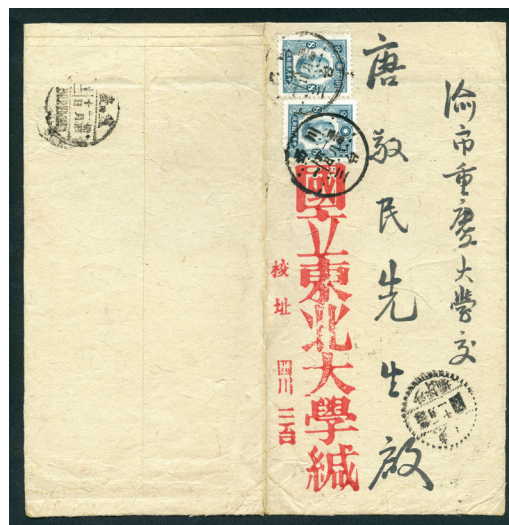 渝市重慶大學交
唐敬民先生啟
國立東北大學緘
校址 四川三台